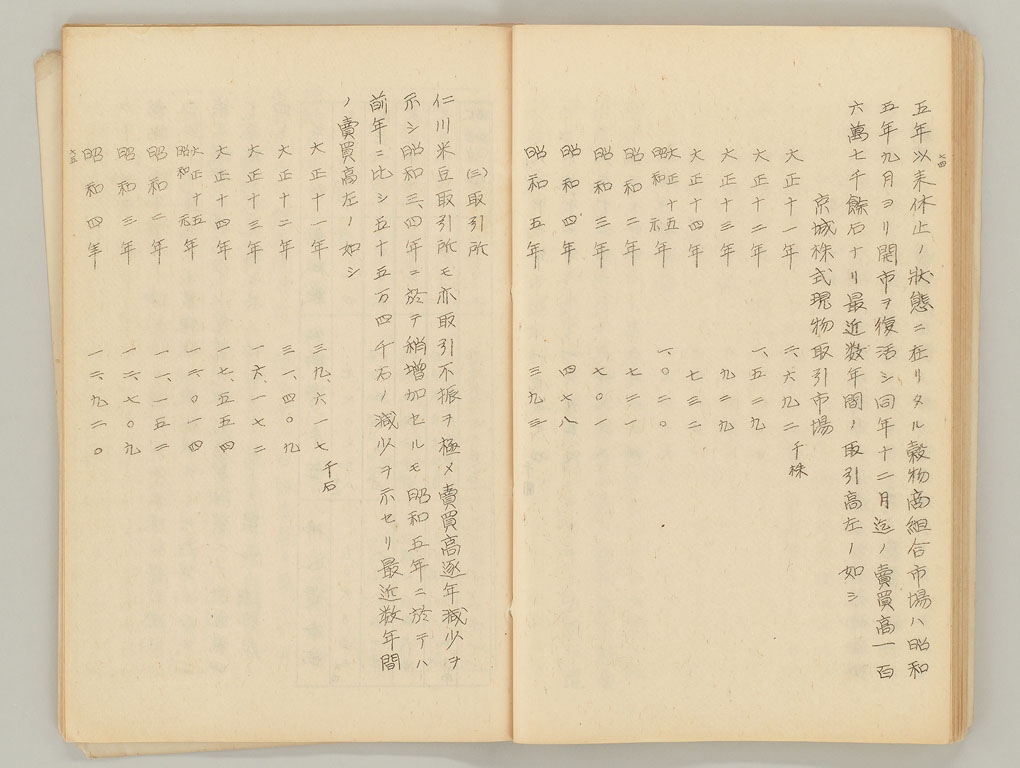 七四
五年以来休止ノ狀態ニ在リタル穀物商組合市場ハ昭和
五年九月ヨリ開市ヲ復活シ同年十二月迄ノ賣買高一百
六萬七千餘石ナリ最近数年間ノ取引高左ノ如シ
京城株式現物取引市場
大正十一年 二、六九二千株
大正十二年 一、五二九
大正十三年 九二九
大正十四年 七三二
大正十五年昭和元年 一、〇二〇
昭和二年 七二一
昭和三年 七〇一
昭和四年 四七八
昭和五年 三九三
(三)取引所
仁川米豆取引所モ亦取引不振ヲ極メ賣買高逐年減少ヲ
示シ昭和三、四年ニ於テ稍增加セルモ昭和五年ニ於テハ
前年ニ比シ五十五万四千石ノ減少ヲ示セリ最近数年間
ノ賣買高左ノ如シ
大正十一年 三九、六一七千石
大正十二年 三一、四〇九
大正十三年 一六、一七二
大正十四年 一七、五五四
大正十五年昭和元年 一二、〇一四
昭和二年 一一、一五二
昭和三年 一二、七〇九
昭和四年 一二、九二〇
七五